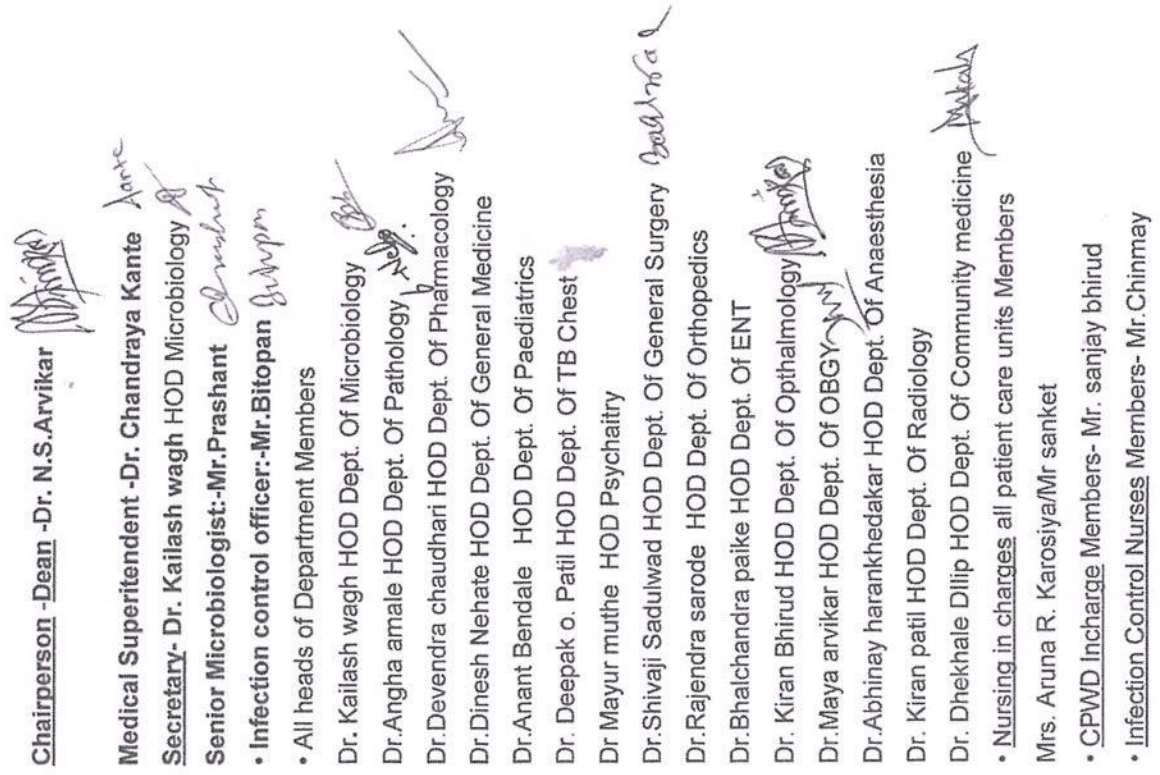 Chairperson -Dean -Dr. N.S.Arvikar
Medical Superitendent -Dr. Chandraya Kante
Secretary- Dr. Kailash wagh HOD Microbiology
Senior Microbiologist:-Mr.Prashant
• Infection control officer:-Mr.Bitopan
• All heads of Department Members
Dr. Kailash wagh HOD Dept. Of Microbiology
Dr.Angha amale HOD Dept. Of Pathology
Dr.Devendra chaudhari HOD Dept. Of Pharmacology
Dr.Dinesh Nehate HOD Dept. Of General Medicine
Dr.Anant Bendale HOD Dept. Of Paediatrics
Dr. Deepak o. Patil HOD Dept. Of TB Chest
Dr Mayur muthe HOD Psychaitry
Dr.Shivaji Sadulwad HOD Dept. Of General Surgery
Dr.Rajendra sarode HOD Dept. Of Orthopedics
Dr.Bhalchandra paike HOD Dept. Of ENT
Dr. Kiran Bhirud HOD Dept. Of Opthalmology
Dr.Maya arvikar HOD Dept. Of OBGY
Dr.Abhinay harankhedakar HOD Dept. Of Anaesthesia
Dr. Kiran patil HOD Dept. Of Radiology
Dr. Dhekhale DIlip HOD Dept. Of Community medicine
• Nursing in charges all patient care units Members
Mrs. Aruna R. Karosiya/Mr sanket
• CPWD Incharge Members- Mr. sanjay bhirud
• Infection Control Nurses Members- Mr.Chinmay